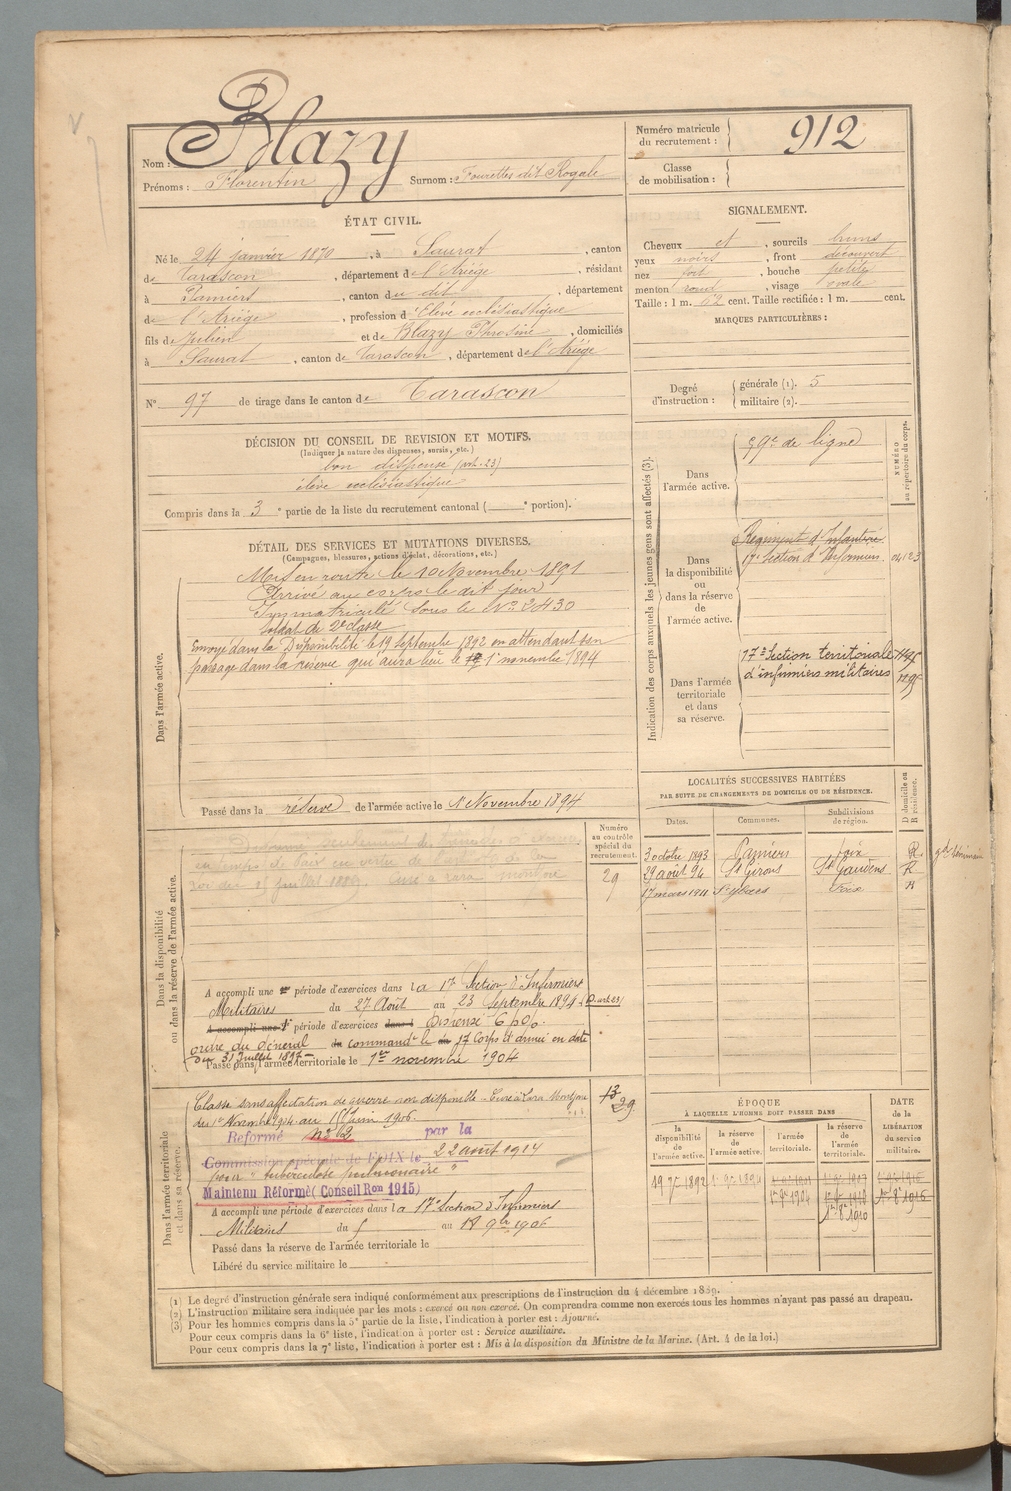 Nom : Blazy
Prénoms : Florentin Surnom : Fourettes dit Rogale
Numéro matricule du recrutement : 912
Classe de mobilisation :
ÉTAT CIVIL.
Né le 24 janvier 1870, à Saurat, canton
de Tarascon, département de l'Ariège, résidant
à Pamiers, canton du dit, département
de l'Ariège, profession d'Elève ecclésiastique
fils de Julien et de Blazy Phrosine, domiciliés
à Saurat, canton de Tarascon, département de l'Ariège
N° 97 de tirage dans le canton de Tarascon
SIGNALEMENT.
Cheveux et, sourcils bruns
yeux noirs, front découvert
nez fort, bouche petite
menton rond, visage ovale
Taille : 1 m. 62 cent. Taille rectifiée : 1 m. cent.
MARQUES PARTICULIÈRES :
Degré d'instruction : générale (1). 5
militaire (2).
DÉCISION DU CONSEIL DE REVISION ET MOTIFS.
(Indiquer la nature des dispenses, sursis, etc.)
bon dispensé (art. 23)
élève ecclésiastique
Compris dans la 3e partie de la liste du recrutement cantonal ( e portion).
DÉTAIL DES SERVICES ET MUTATIONS DIVERSES.
(Campagnes, blessures, actions d'éclat, décorations, etc.)
Dans l'armée active.
Mis en route le 10 Novembre 1891
Arrivé au corps le dit jour
Immatriculé sous le No 2430
soldat de 2e classe
Envoyé dans la Disponibilité le 19 septembre 1892 en attendant son
passage dans la réserve qui aura lieu le 1 novembre 1894
Passé dans la réserve de l'armée active le 1er Novembre 1894
Indication des corps auxquels les jeunes gens sont affectés (3).
NUMÉRO au répertoire du corps.
Dans l'armée active.
59e de ligne
Dans la disponibilité ou dans la réserve de l'armée active.
Régiment d'Infanterie
17e Section d'Infirmiers 04123
Dans l'armée territoriale et dans sa réserve.
17e Section territoriale
d'infirmiers militaires
LOCALITÉS SUCCESSIVES HABITÉES
PAR SUITE DE CHANGEMENTS DE DOMICILE OU DE RÉSIDENCE.
Dates. Communes. Subdivisions de région. D domicile ou R résidence.
3 octobre 1893 Pamiers Foix R
29 août 94 St Girons St Gaudens R
17 mars 1911 St Ybars Foix R
Dans la disponibilité ou dans la réserve de l'armée active.
Numéro au contrôle spécial du recrutement.
29
en temps de paix en vertu de
loi du 15 juillet 1889.
A accompli une période d'exercices dans la 17e Section d'Infirmiers
Militaires du 27 Août au 23 Septembre 1894
A accompli une période d'exercices dans Dispensé
ordre du Général commandt le 17 Corps d'armée en date
du 31 Juillet 1897
Passé dans l'armée territoriale le 1er novembre 1904
Dans l'armée territoriale et dans sa réserve.
Classé sans affectation de guerre non disponible
du 1er Novembre 1904 au 15 Juin 1906.
13
29
Reformé no 2 par la
Commission spéciale de FOIX le 22 août 1914
pour "tuberculose pulmonaire"
Maintenu Réformé (Conseil Ron 1915)
A accompli une période d'exercices dans la 17e Section d'Infirmiers
Militaires du au 18 9bre 1906
Passé dans la réserve de l'armée territoriale le
Libéré du service militaire le
ÉPOQUE
À LAQUELLE L'HOMME DOIT PASSER DANS
la disponibilité de l'armée active. la réserve de l'armée active. l'armée territoriale. la réserve de l'armée territoriale.
DATE de la LIBÉRATION du service militaire.
19 7r 1892
(1) Le degré d'instruction générale sera indiqué conformément aux prescriptions de l'instruction du 4 décembre 1889.
(2) L'instruction militaire sera indiquée par les mots : exercé ou non exercé. On comprendra comme non exercés tous les hommes n'ayant pas passé au drapeau.
(3) Pour les hommes compris dans la 5e partie de la liste, l'indication à porter est : Ajourné.
Pour ceux compris dans la 6e liste, l'indication à porter est : Service auxiliaire.
Pour ceux compris dans la 7e liste, l'indication à porter est : Mis à la disposition du Ministre de la Marine. (Art. 4 de la loi.)